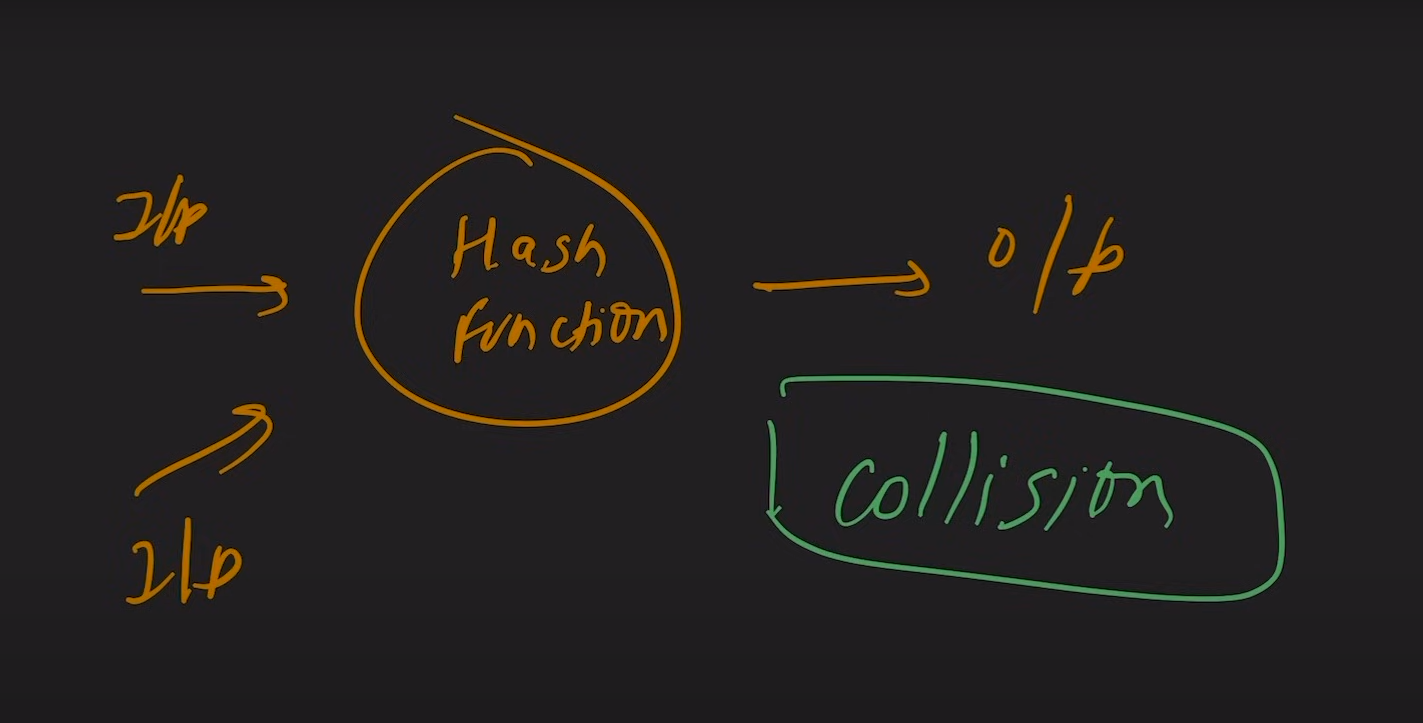 I/p
Hash
function
o/p
I/p
collision